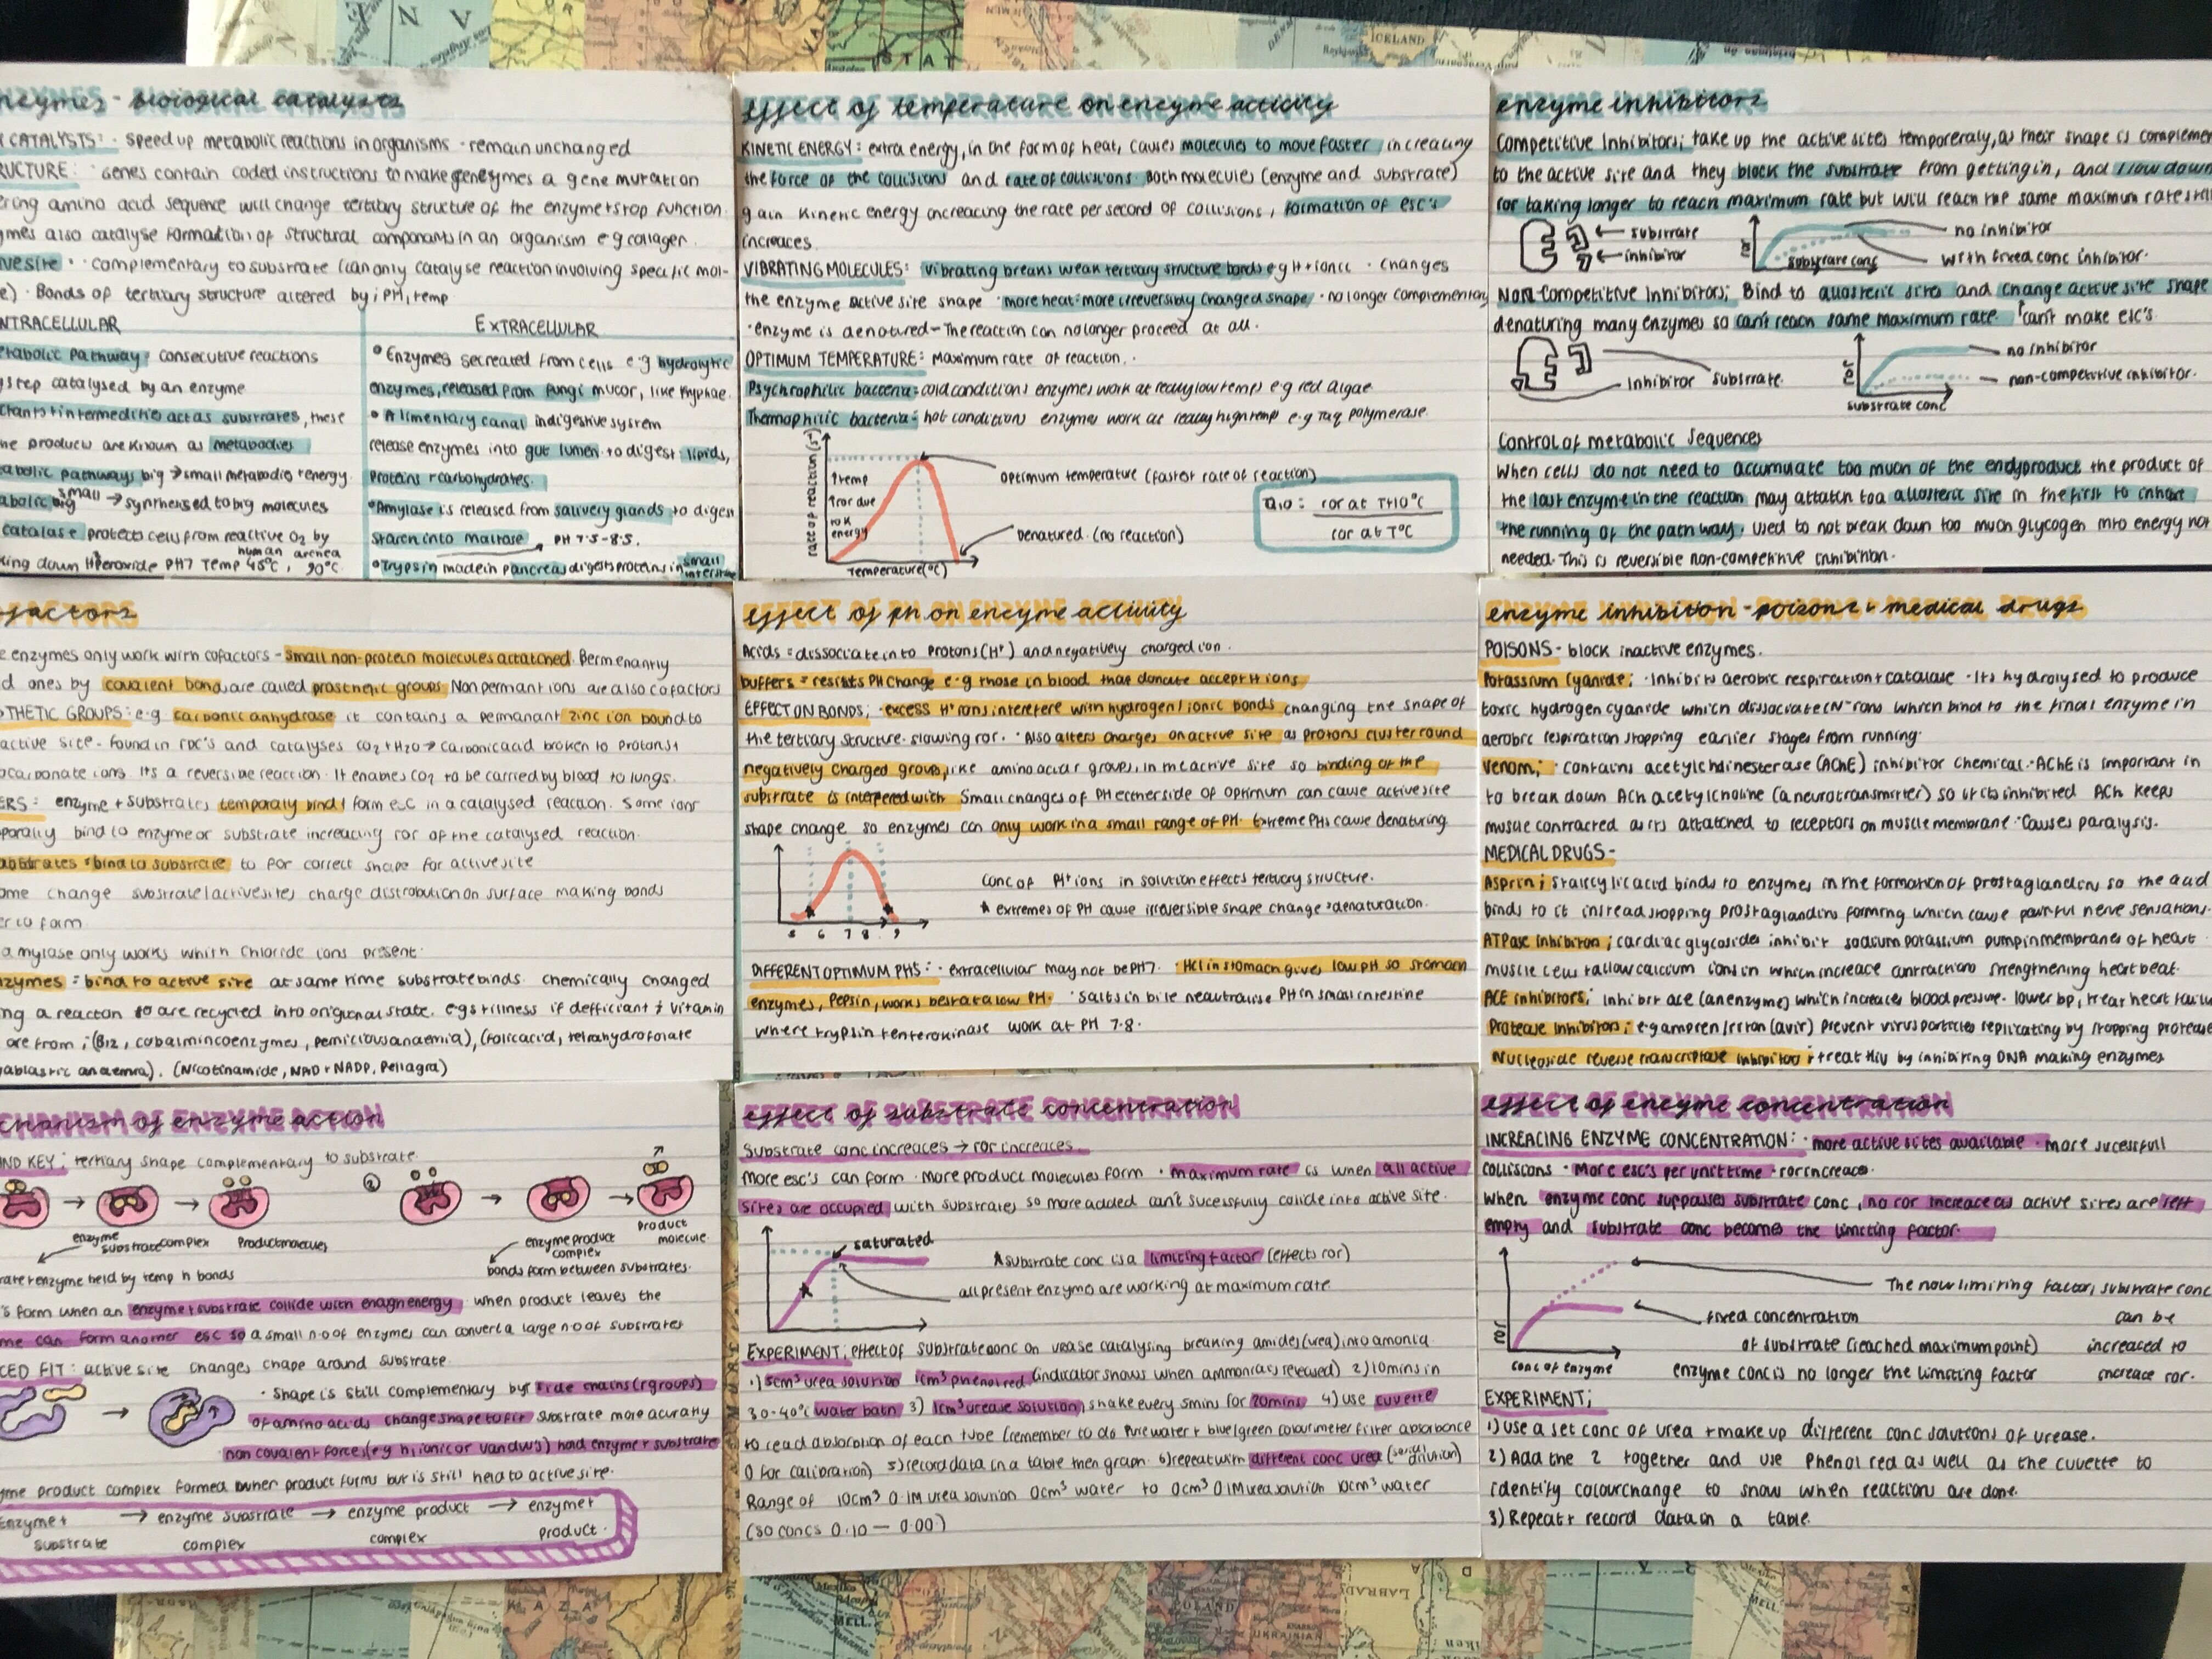 nzymes - biological catalysts
CATALYSTS: · speed up metabolic reactions in organisms · remain unchanged
RUCTURE: · Genes contain coded instructions to make genezymes a gene mutation
ering amino acid sequence will change tertiary structure of the enzyme + stop function.
ymes also catalyse formation of structural components in an organism e g collagen.
ve site · · complementary to substrate (can only catalyse reaction involving specific mol-
e) · Bonds of tertiary structure altered by ; PH, temp
NTRACELLULAR
etabolic pathway: consecutive reactions
step catalysed by an enzyme
ctants + intermedities act as substrates, these
he products are known as metabodies
abolic pathways big → small metabodies + energy.
abolic big small → synthensed to big molecules
catalase protects cells from reactive O2 by
king down H peroxide PH7 Temp human 45°C, archea 90°C
EXTRACELLULAR
• Enzymes secreated from cells e.g hydrolytic
enzymes, released from fungi mucor, like hyphae.
• Alimentary canal in digestive system
release enzymes into gut lumen to digest lipids,
Proteins + carbohydrates.
• Amylase is released from salivery glands to digest
Starch into maltose PH 7.5-8.5.
• Trypsin made in pancreas digests proteins in small intestine
effect of temperature on enzyme activity
KINETIC ENERGY: extra energy, in the form of heat, causes molecules to move faster, increasing
the force of the collisions and rate of collisions. Both molecules (enzyme and substrate)
gain kinetic energy increasing the rate per second of collisions, formation of esc's
increaces.
VIBRATING MOLECULES: vibrating breaks weak tertiary structure bonds e g H + ionic · changes
the enzyme active site shape · more heat = more irreversibly changed shape · no longer complementary
· enzyme is denatured - The reaction can no longer proceed at all.
OPTIMUM TEMPERATURE: Maximum rate of reaction.
Psychrophilic bacteria: cold conditions enzymes work at really low temp e g red algae
Thermophilic bacteria: hot conditions enzymes work at really high temp e.g Taq polymerase.
rate of reaction
↑temp
↑ror due
to K
energy
optimum temperature (faster rate of reaction)
Denatured (no reaction)
Temperature (°C)
Q10: ror at T+10°C
ror at T°C
enzyme inhibitors
Competitive Inhibitors; take up the active sites temporeraly, as their shape is complemen
to the active site and they block the substrate from getting in, and slow down
ror taking longer to reach maximum rate but will reach the same maximum rate still
substrate
inhibitor
no inhibitor
with fixed conc inhibitor.
substrate conc
Non Competitive Inhibitors; Bind to allosteric sites and change active site shape
denaturing many enzymes so can't reach same maximum rate. ↑can't make esc's
inhibitor substrate.
no inhibitor
non-competitive inhibitor.
substrate conc
Control of metabolic sequences
when cells do not need to accumulate too much of the endyproduct the product of
the last enzyme in the reaction may attatch to a allosteric site in the first to inhibit
the running of the pathway, used to not break down too much glycogen into energy not
needed. This is reversible non-competitive inhibition.
factors
e enzymes only work with cofactors - small non-protein molecules attatched. Permenantly
d ones by covalent bond are called prosthetic groups Non permant ions are also cofactors
THETIC GROUPS: e.g carbonic anhydrase it contains a permanant zinc ion bound to
active site. found in rbc's and catalyses CO2 + H2O → carbonic acid broken to protons +
ocarbonate ions Its a reversible reaction. It enables CO2 to be carried by blood to lungs.
ERS: enzyme + substrates temporaly bind + form esc in a catalysed reaction. Some ions
porally bind to enzyme or substrate increasing ror of the catalysed reaction.
substrates = bind to substrate to for correct shape for active site
ome change substrate/active sites charge distribution on surface making bonds
er to form.
amylase only works which chloride ions present.
nzymes = bind to active site at same time substrate binds. chemically changed
ng a reaction to are recycled into origional state. e g s + illness if defficiant ; vitamin
are from ; (B12, cobalmin coenzymes, pernicious anaemia), (folic acid, tetrahydrofolate
ablastic anaemia). (Nicotinamide, NAD + NADP, Pellagra)
effect of ph on enzyme activity
Acids = dissociate into Protons (H+) and negatively charged ion.
buffers = resists PH change e.g those in blood that donate accept H ions
EFFECT ON BONDS; · excess H+ ions interefere with hydrogen/ionic bonds changing the shape of
the tertiary structure. slowing ror. · Also alters charges on active site as protons cluster round
negatively charged group, like amino acid r groups, in the active site so binding of the
substrate is interfered with Small changes of PH either side of optimum can cause active site
shape change so enzymes can only work in a small range of PH. Extreme PHs cause denaturing
5 6 7 8 9
Conc of H+ ions in solution effects tertiary structure.
* extremes of PH cause irreversible shape change = denaturation.
DIFFERENT OPTIMUM PHS: · extracellular may not be PH7. · HCl in stomach gives low pH so stomach
enzymes, Pepsin, works best at a low PH. · Salts in bile neautralise PH in small intestine
where trypsin + enterokinase work at PH 7.8.
enzyme inhibition - poisons + medical drugs
POISONS - block inactive enzymes.
Potassium Cyanide; · Inhibits aerobic respiration + catalase · Its hydrolysed to produce
toxic hydrogen cyanide which dissociate CN- ions which bind to the final enzyme in
aerobic respiration stopping earlier stages from running.
Venom; · contains acetylcholinesterase (AChE) inhibitor chemical. AChE is important in
to break down ACh acetylcholine (a neurotransmitter) so if its inhibited ACh keeps
muscle contracted as its attatched to receptors on muscle membrane. Causes paralysis.
MEDICAL DRUGS -
Asprin; Staicylic acid binds to enzymes in the formation of prostaglandins so the acid
binds to it instead stopping Prostaglandins forming which cause painful nerve sensations.
ATPase Inhibitors; cardiac glycosides inhibit sodium potassium pump in membranes of heart
muscle cells + allow calcium ions in which increace contractions strengthning heart beat.
ACE inhibitors; inhibit ace (an enzyme) which increaces blood pressure. lower bp, treat heart failu
Protease Inhibitors; e.g ampren / riton (avir) prevent virus particles replicating by stopping protease
Nucleoside reverse transcriptase inhibitors; treat HIV by inhibiting DNA making enzymes
CHANISM OF enzyme action
AND KEY: tertiary shape complementary to substrate
②
enzyme
substrate complex
Product molecules
enzyme product
complex
bonds form between substrates.
Product
molecule.
rate + enzyme held by temp h bonds
's form when an enzyme + substrate collide with enough energy when product leaves the
me can form another esc so a small no of enzymes can convert a large no of substrates
CED FIT: active site changes chape around substrate.
· Shape is still complementary but side chains (r groups)
of amino acids change shape to fit substrate more acuratly
non covalent forces (eg h, ionic or vandws) hold enzyme + substrate
yme product complex formed when product forms but is still held to active site.
Enzyme + substrate → enzyme substrate complex → enzyme product complex → enzyme + product.
effect of substrate concentration
Substrate conc increaces → ror increaces.
More esc's can form · More product molecules form · maximum rate is when all active
sites are occupied with substrates so more added can't sucessfully collide into active site.
saturated
*substrate conc is a limiting factor (effects ror)
all present enzymes are working at maximum rate
EXPERIMENT; effect of substrate conc on urease catalysing breaking amides (urea) into amonia
1) 5cm³ urea solution 1cm³ phenol red (indicator shows when ammonia is released) 2) 10 mins in
30-40°C water bath 3) 1cm³ urease solution, shake every 5 mins for 20 mins 4) use cuvette
to read absorbtion of each tube (remember to do Pure water + blue/green colourimeter filter absorbance
0 for calibration) 5) record data in a table then graph. 6) repeat with different conc urea (serial dilution)
Range of 10cm³ 0.1M urea solution 0cm³ water to 0cm³ 0.1M urea solution 10cm³ water
(so concs 0.10 — 0.00)
effect of enzyme concentration
INCREACING ENZYME CONCENTRATION: · more active sites available · more sucessfull
collisions · More esc's per unit time · ror increace.
When enzyme conc suppasses substrate conc, no ror increace as active sites are left
empty and substrate conc becomes the limiting factor.
The now limiting factor, substrate conc
can be
increased to
increace ror.
fixed concentration
of substrate (reached maximum point)
enzyme conc is no longer the limiting factor
ror
conc of enzyme
EXPERIMENT;
1) Use a set conc of urea + make up different conc solutions of urease.
2) Add the 2 together and use Phenol red as well as the cuvette to
identify colourchange to show when reactions are done.
3) Repeat + record data in a table.
ICELAND
POLAND
UKRAINIAN
MELL.